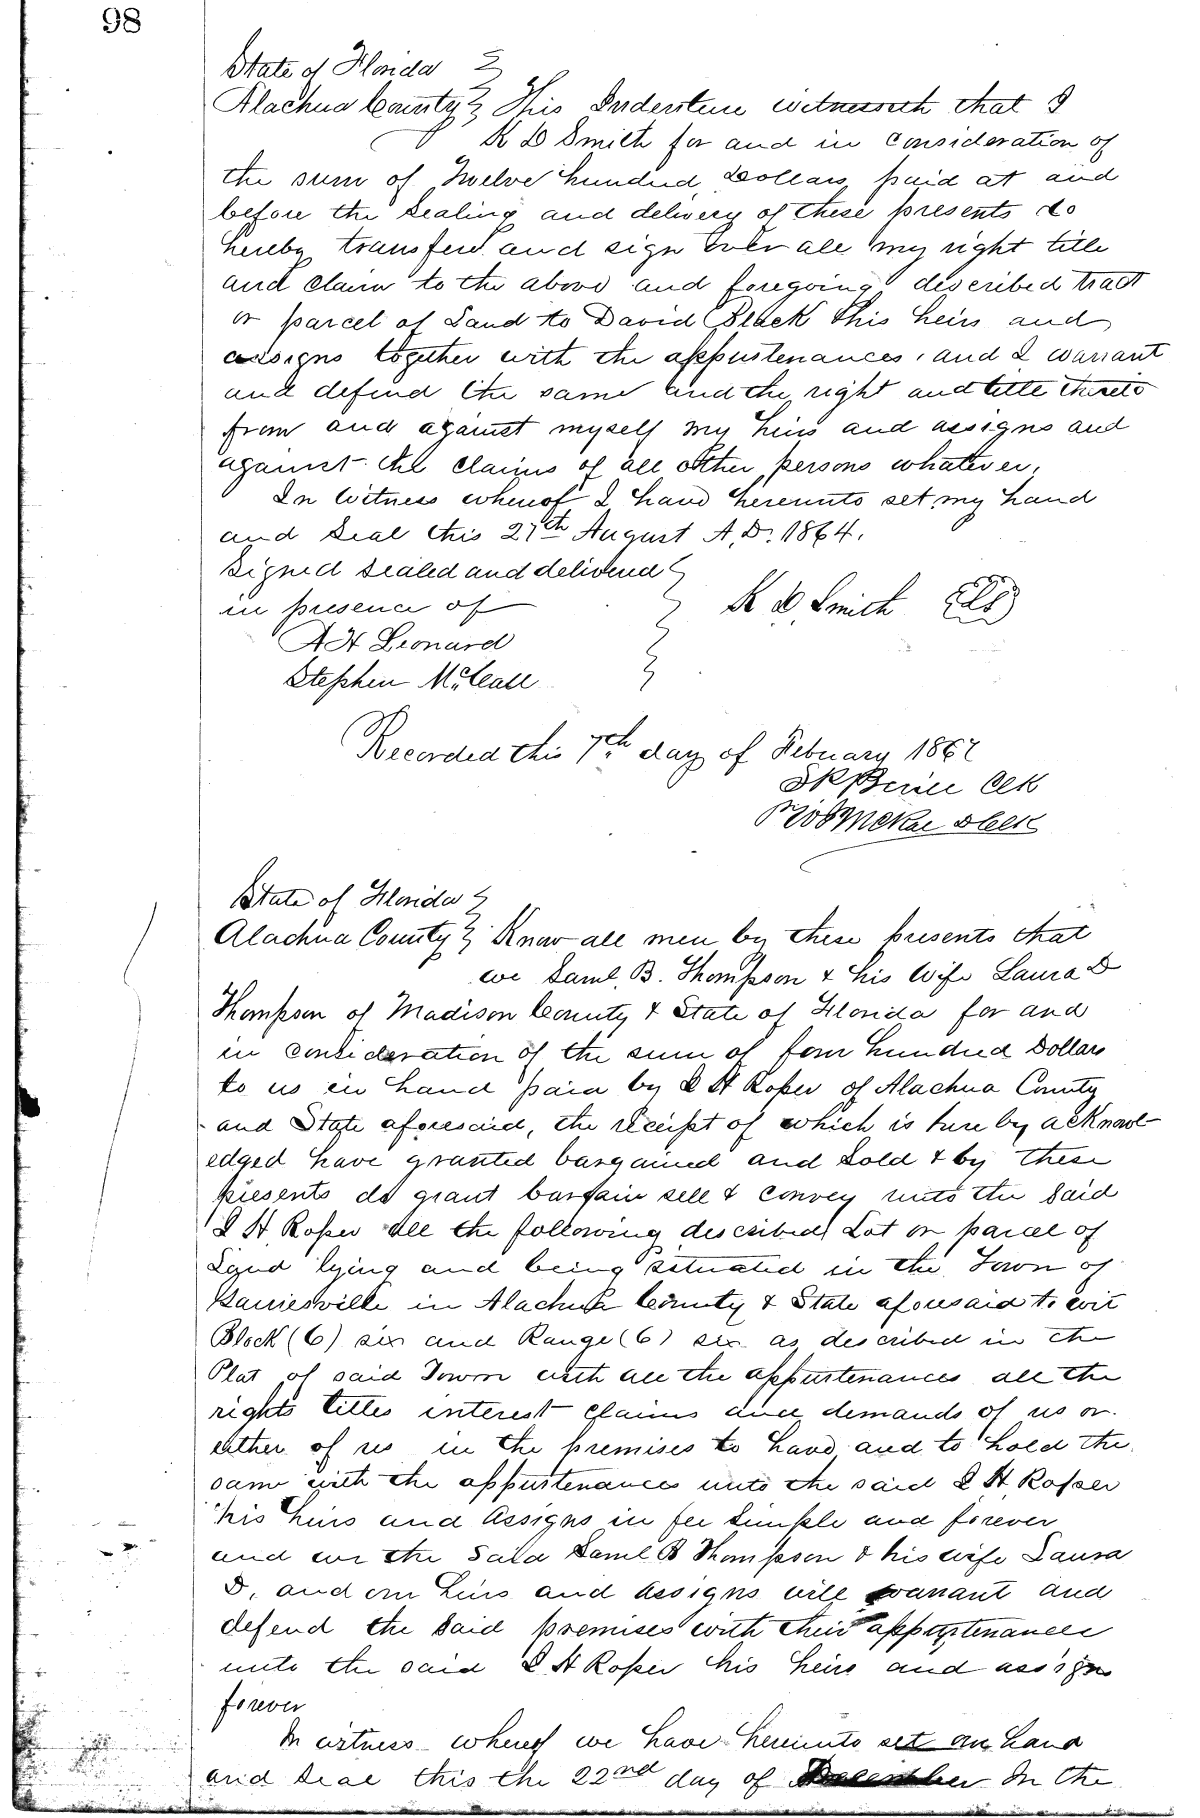 98
State of Florida
Alachua County This Indenture witnesseth that I
K D Smith for and in consideration of
the sum of Twelve hundred Dollars paid at and
before the sealing and delivery of these presents do
hereby transferd and sign over all my right title
and claim to the above and foregoing described tract
or parcel of Land to David Black this heirs and
assigns together with the appurtenances, and I warrant
and defend the same and the right and title thereto
from and against myself my heirs and assigns and
against the claims of all other persons whatever,
In Witness whereof I have hereunto set my hand
and Seal this 27th August A.D. 1864.
Signed sealed and delivered
in presence of K D Smith LS
A H Leonard
Stephen McCall
Recorded this 7th day of Febuary 1867
Clk
McKae D Clk
State of Florida
Alachua County Know all men by these presents that
we Saml. B. Thompson & his Wife Laura D
Thompson of Madison County & State of Florida for and
in consideration of the sum of four hundred Dollars
to us in hand paid by L H Roper of Alachua County
and State aforesaid, the receipt of which is here by acknowl-
edged have granted bargained and Sold & by these
presents do grant bargain sell & convey unto the said
L H Roper all the following described Lot or parcel of
Land lying and being situated in the Town of
Gainesville in Alachua County & State aforesaid to wit
Block (6) six and Range (6) six as described in the
Plat of said Town with all the appurtenances all the
rights titles interest claims and demands of us or
either of us in the premises to have and to hold the
same with the appurtenances unto the said L H Roper
his heirs and Assigns in fee simple and forever
and we the said Saml B Thompson & his wife Laura
D, and our heirs and assigns will warrant and
defend the said premises with their appurtenances
unto the said L H Roper his heirs and assigns
forever
In witness whereof we have hereunto set our hand
and Seal this the 22nd day of December In the